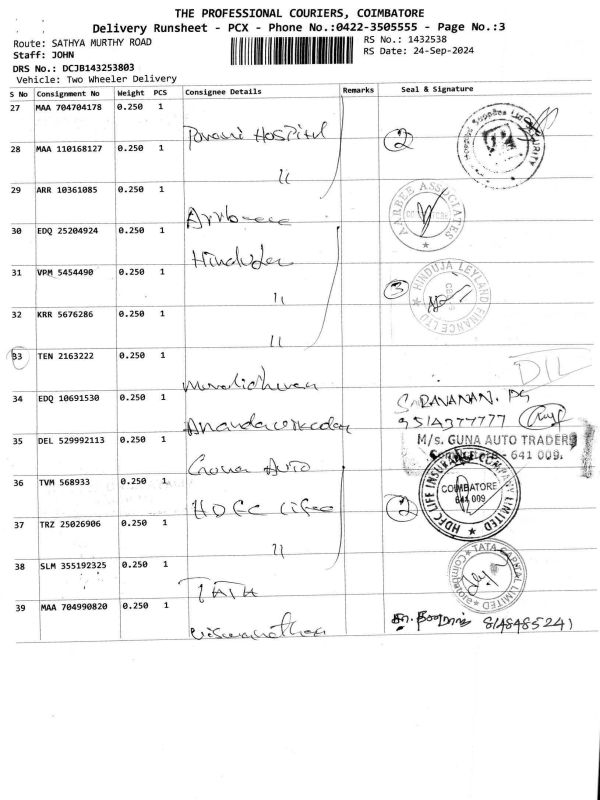 THE PROFESSIONAL COURIERS, COIMBATORE
Delivery Runsheet - PCX - Phone No.:0422-3505555 - Page No.:3
Route: SATHYA MURTHY ROAD
RS No.: 1432538
Staff: JOHN
RS Date: 24-Sep-2024
DRS No.: DCJB143253803
Vehicle: Two Wheeler Delivery
S No Consignment No Weight PCS Consignee Details Remarks Seal & Signature
27 MAA 704704178 0.250 1
Hospital
2
28 MAA 110168127 0.250 1
"
29 ARR 10361085 0.250 1
AARBEE ASSOCIATES
30 EDQ 25204924 0.250 1
31 VPM 5454490 0.250 1
"
3 HINDUJA LEYLAND FINANCE LTD
32 KRR 5676286 0.250 1
"
33 TEN 2163222 0.250 1
DIL
34 EDQ 10691530 0.250 1
SARAVANAN. PG
9514377777
35 DEL 529992113 0.250 1
Guna Auto
M/s. GUNA AUTO TRADERS
COIMBATORE - 641 009.
36 TVM 568933 0.250 1
HDFC Life
2 HDFC LIFE INSURANCE COMPANY LIMITED
COIMBATORE
641 009
37 TRZ 25026906 0.250 1
"
38 SLM 355192325 0.250 1
TATA
TATA CAPITAL LIMITED Coimbatore
39 MAA 704990820 0.250 1
8148485241